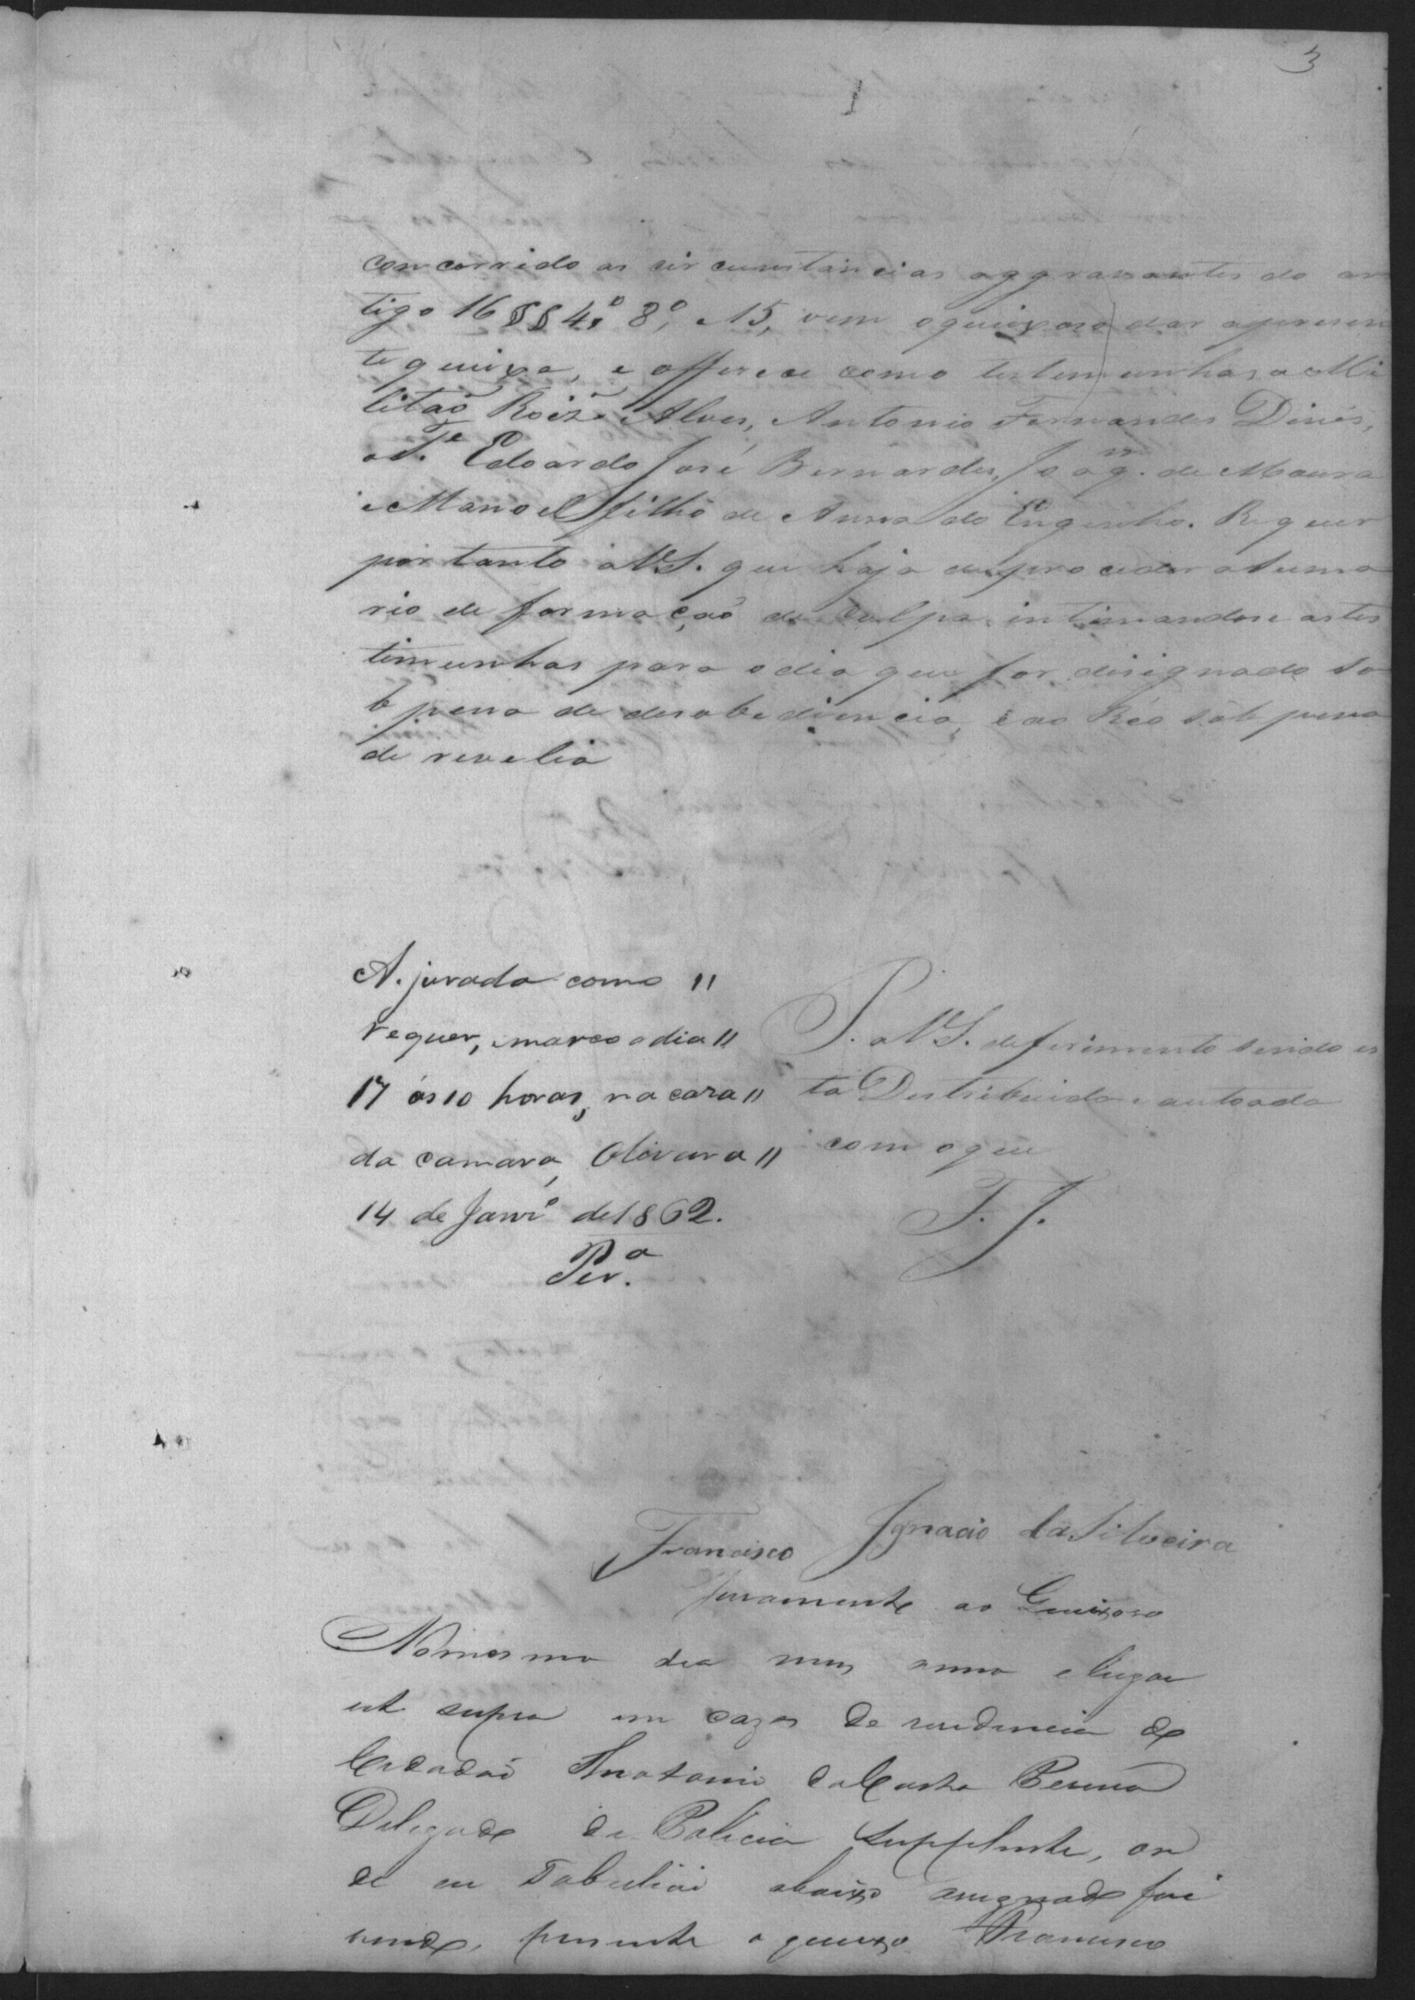 3
concorrido as circunstancias aggravantes do ar
tigo 16 §§ 4º, 8º, e 15, vem o queixoso dar a presen
te queixa, e offerece como testemunhas a Mi
litaõ Roiz Alves, Antonio Fernandes Diniz,
o Te. Edoardo José Bernardes, Joaqm. de Moura
e Manoel filho de Anna do Engenho. Requer
portanto a V.S. que haja de proceder a suma
rio de formaçaõ de culpa, intimandose as tes
timunhas para o dia que for disignado so
b pena de desobediencia, e ao Réo sob pena
de revelia
A. jurada como
requer, marco o dia
17 ás 10 horas, na caza
da camara, Olivara
14 de Janrº de 1862.
Perª.
P. a V.S. deferimento sendo es
ta Destribuida e autoada
com o que
F. J.
Francisco Ignacio da Silveira
Juramento ao Queixoso
No mesmo dia mes anno e lugar
ut supra em cazas de rezidencia do
Cidadaõ Antonio da Costa Pereira
Delegado de Policia Supplente, on
de eu Tabeliaõ abaixo assignado fui
vindo, prezente o queixoso Francisco